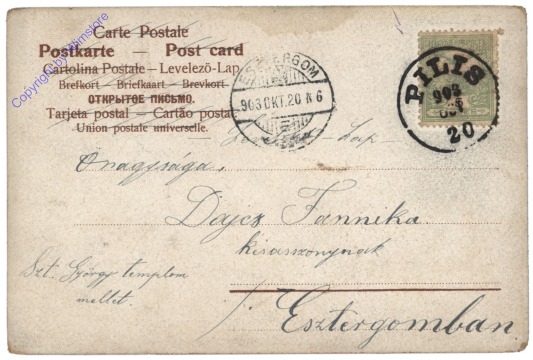 Carte Postale
Postkarte — Post card
Cartolina Postale – Levelező-Lap
Brefkort – Briefkaart – Brevkort
ОТКРЫТОЕ ПИСЬМО.
Tarjeta postal – Cartão postal
Union postale universelle.
Copyright by filmstore
ESZTERGOM
903 OKT. 20 N 6
PILIS
903
20
Lap
Őnagysága,
Dajcs Fannika
kisasszonynak
Szt. György templom
mellet.
Esztergomban